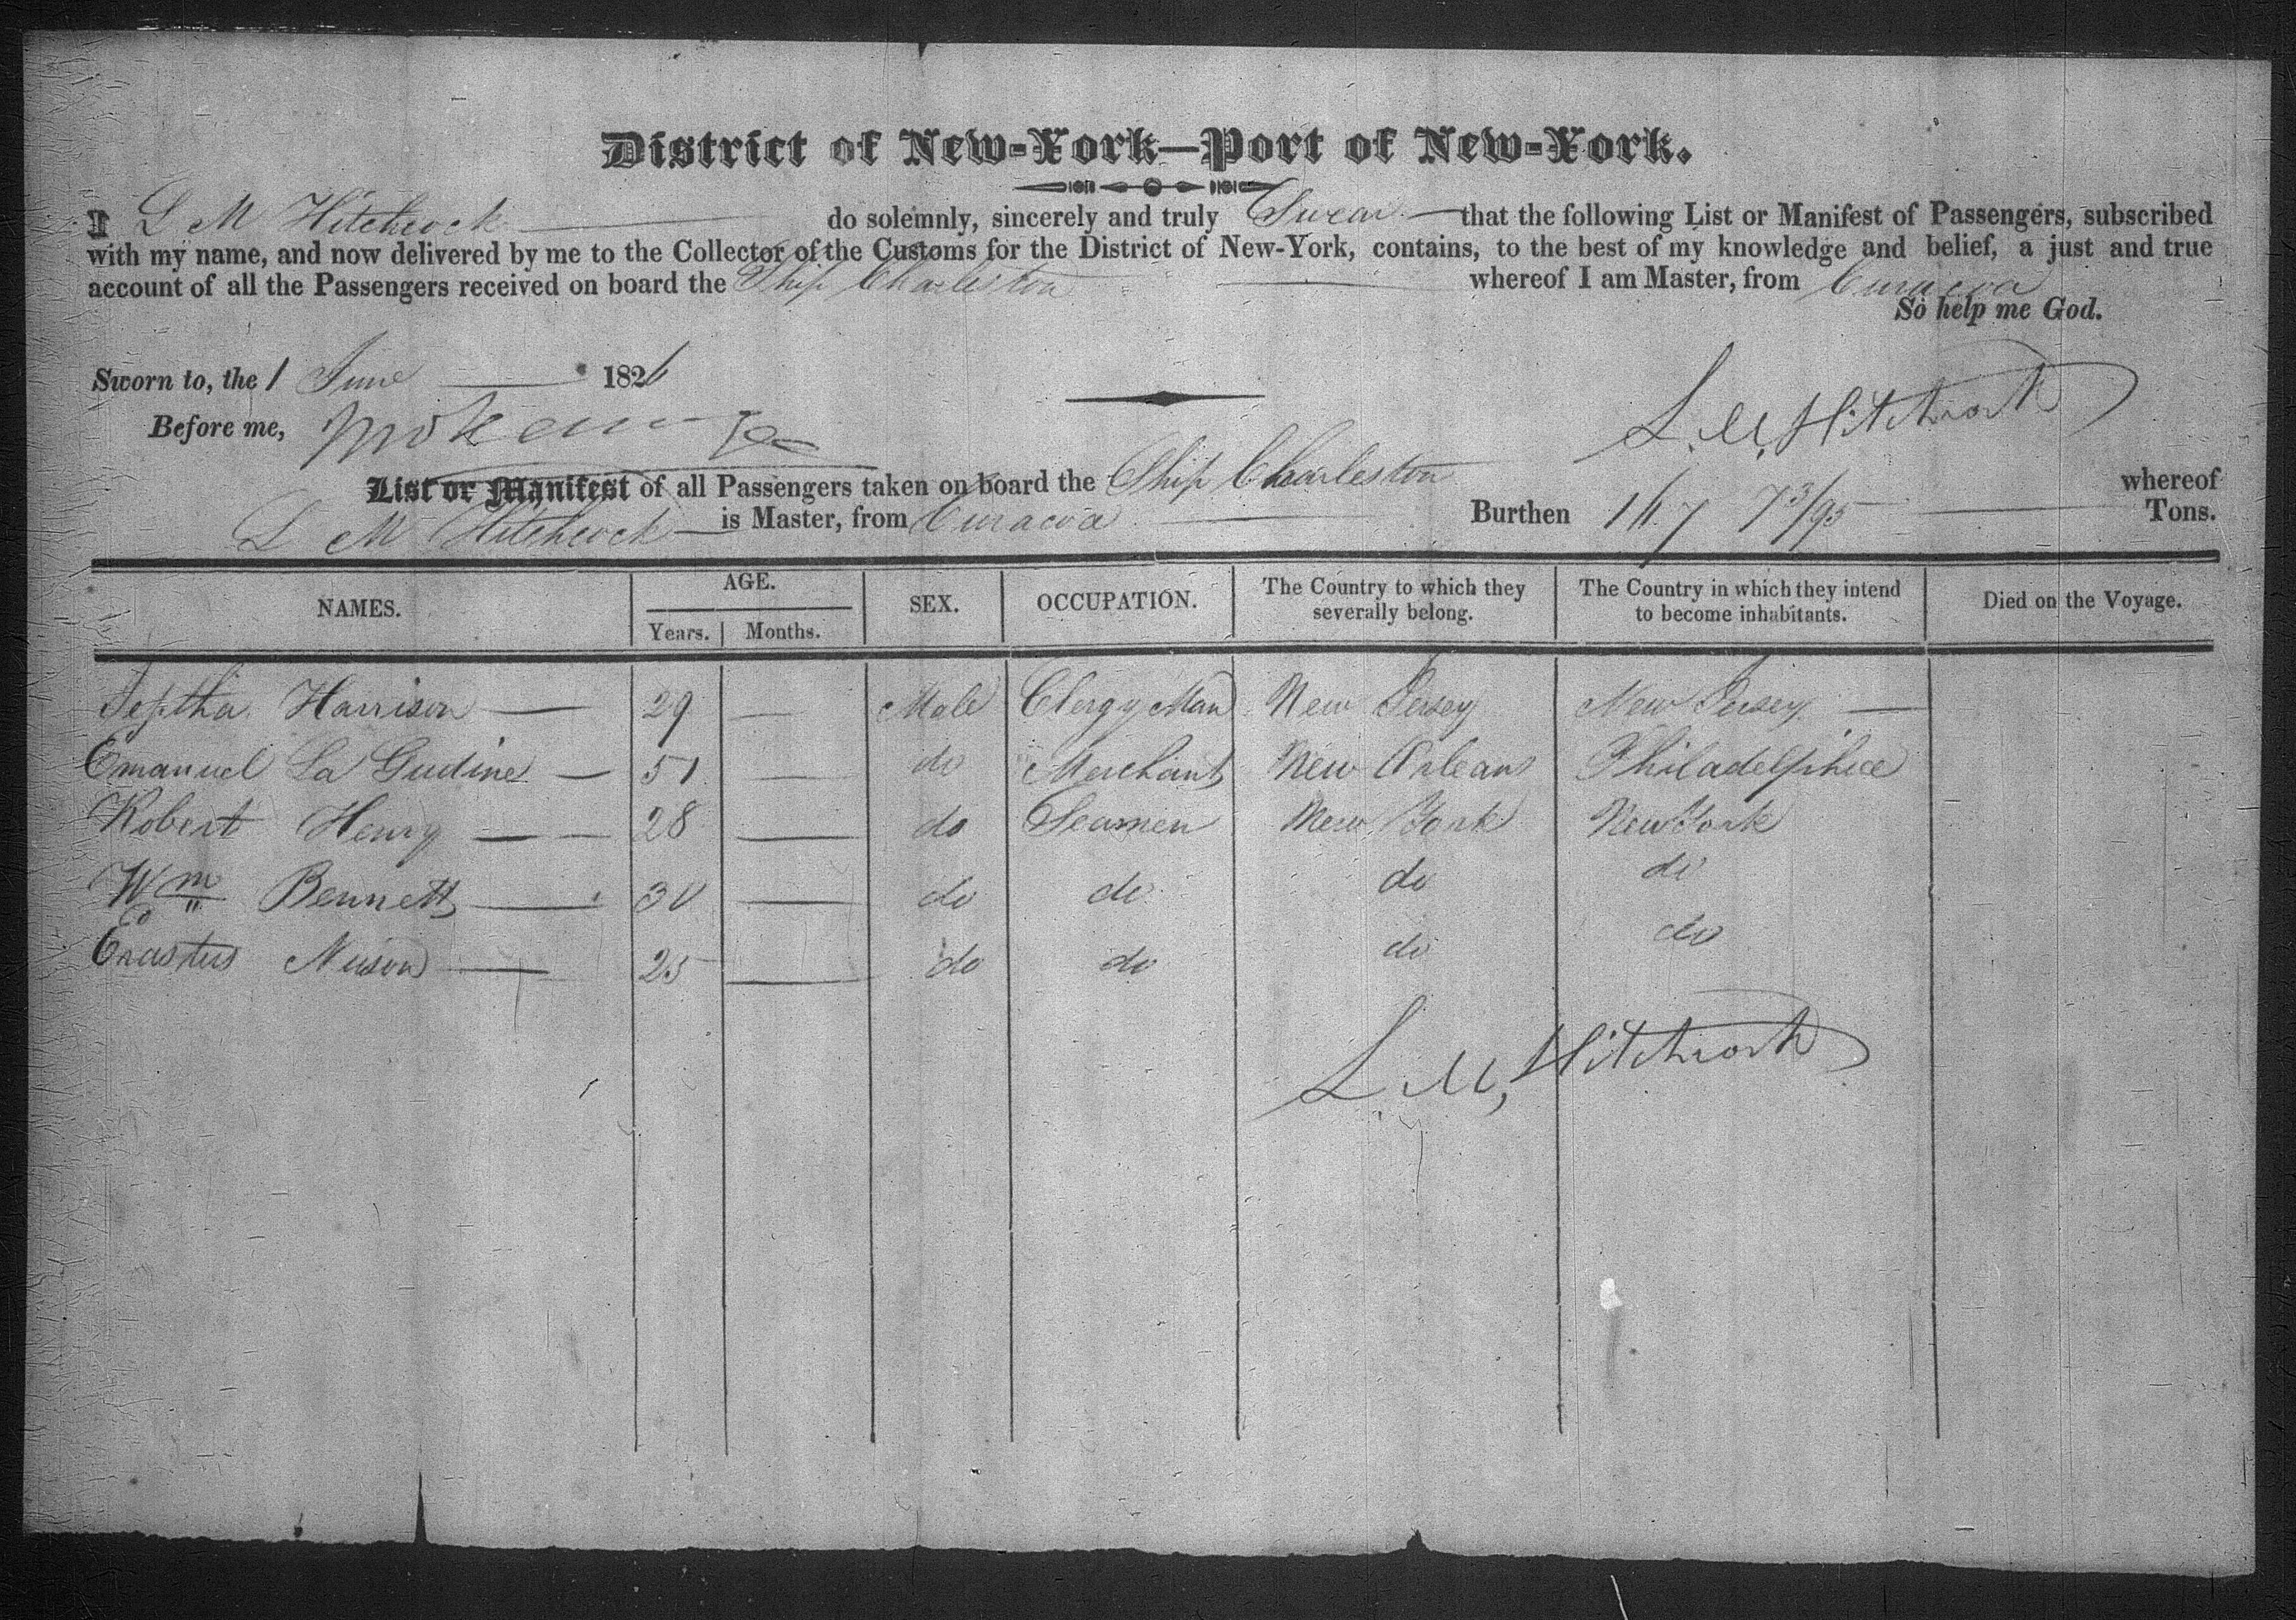 District of New-York—Port of New-York.
I L M Hitchcock do solemnly, sincerely and truly Swear that the following List or Manifest of Passengers, subscribed
with my name, and now delivered by me to the Collector of the Customs for the District of New-York, contains, to the best of my knowledge and belief, a just and true
account of all the Passengers received on board the Ship Charleston whereof I am Master, from Curacoa
So help me God.
Sworn to, the 1 June 1826
Before me,
L. M. Hitchcock
List or Manifest of all Passengers taken on board the Ship Charleston whereof
L M Hitchcock is Master, from Curacoa Burthen 167 73/95 Tons.
NAMES. AGE. SEX. OCCUPATION. The Country to which they severally belong. The Country in which they intend to become inhabitants. Died on the Voyage.
Years. Months.
Jeptha Harrison — 29 — Male Clergy Man New Jersey New Jersey —
Emanuel La Gudine — 51 — do Merchant New Orleans Philadelphia
Robert Henry — — 28 — do Seamen New York New York
Wm Bennett — 30 — do do do do
Erastus — 25 — do do do do
L. M. Hitchcock